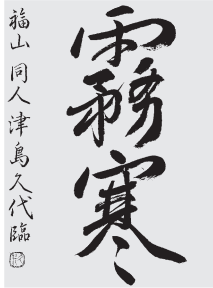 霧寒
福山 同人 津島久代臨